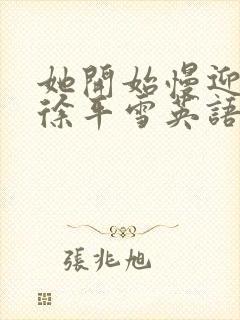 她開始慢迎
徐平雪英語
張兆旭